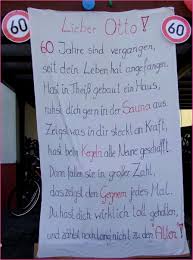 Lieber Otto!
60
60
60 Jahre sind vergangen,
seit dein Leben hat angefangen.
Hast in Theiß gebaut ein Haus,
ruhst dich gern in der Sauna aus.
Zeigst was in dir steckt an Kraft,
hast beim Kegeln alle Neune geschafft.
Dann fallen sie in großer Zahl,
das zeigst den Gegnern jedes Mal.
Du hast dich wirklich toll gehalten,
und zählst noch lang nicht zu den "Alten"!